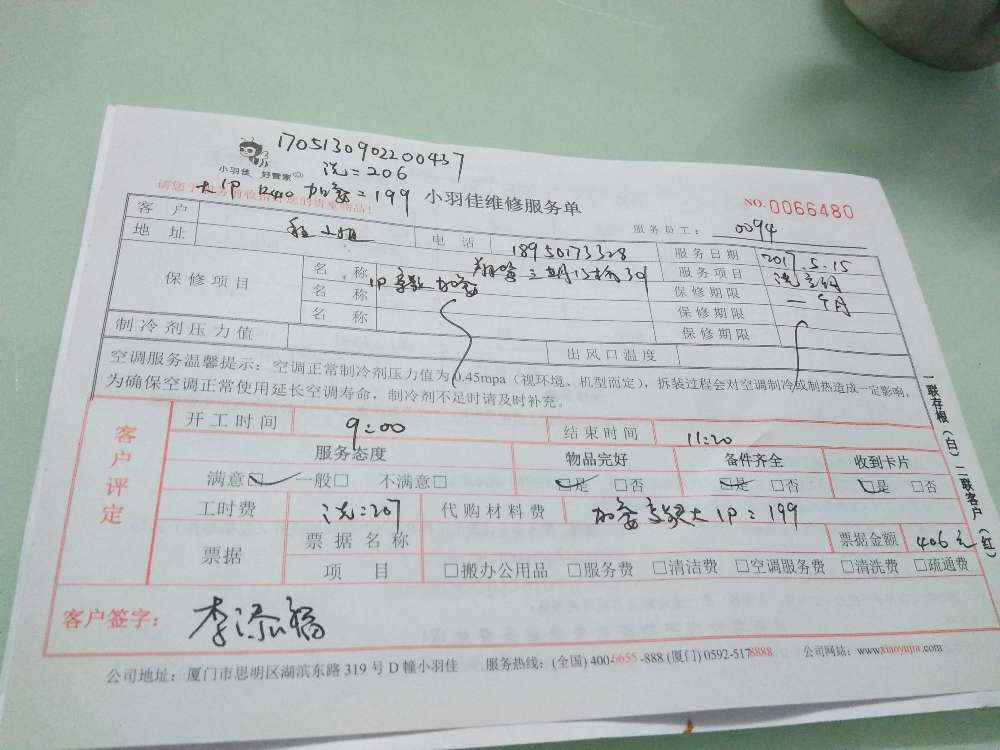 1705130902200437
洗=206
小羽佳 好管家
大1P R410 加氨=199
小羽佳维修服务单
NO.0066480
服务员工: 0094
客户 程小姐 电话 18950173328 服务日期 2017.5.15
地址 服务项目
保修项目 名称 保修期限 一个月
名称 保修期限
名称 保修期限
制冷剂压力值 出风口温度
空调服务温馨提示:空调正常制冷剂压力值为0.45mpa(视环境、机型而定),拆装过程会对空调制冷或制热造成一定影响。
为确保空调正常使用延长空调寿命,制冷剂不足时请及时补充。
一联存根(白) 二联客户(红)
客户评定
开工时间 9:00 结束时间 11:20
服务态度 物品完好 备件齐全 收到卡片
满意☑ 一般□ 不满意□ ☑是 □否 ☑是 □否 ☑是 □否
工时费 洗=207 代购材料费 大1P=199
票据 票据名称 票据金额 406元
项目 □搬办公用品 □服务费 □清洁费 □空调服务费 □清洗费 □疏通费
客户签字: 李添福
公司地址:厦门市思明区湖滨东路319号D幢小羽佳 服务热线:(全国)400-6655-888(厦门)0592-5178888 公司网站:www.xiaoyujia.com